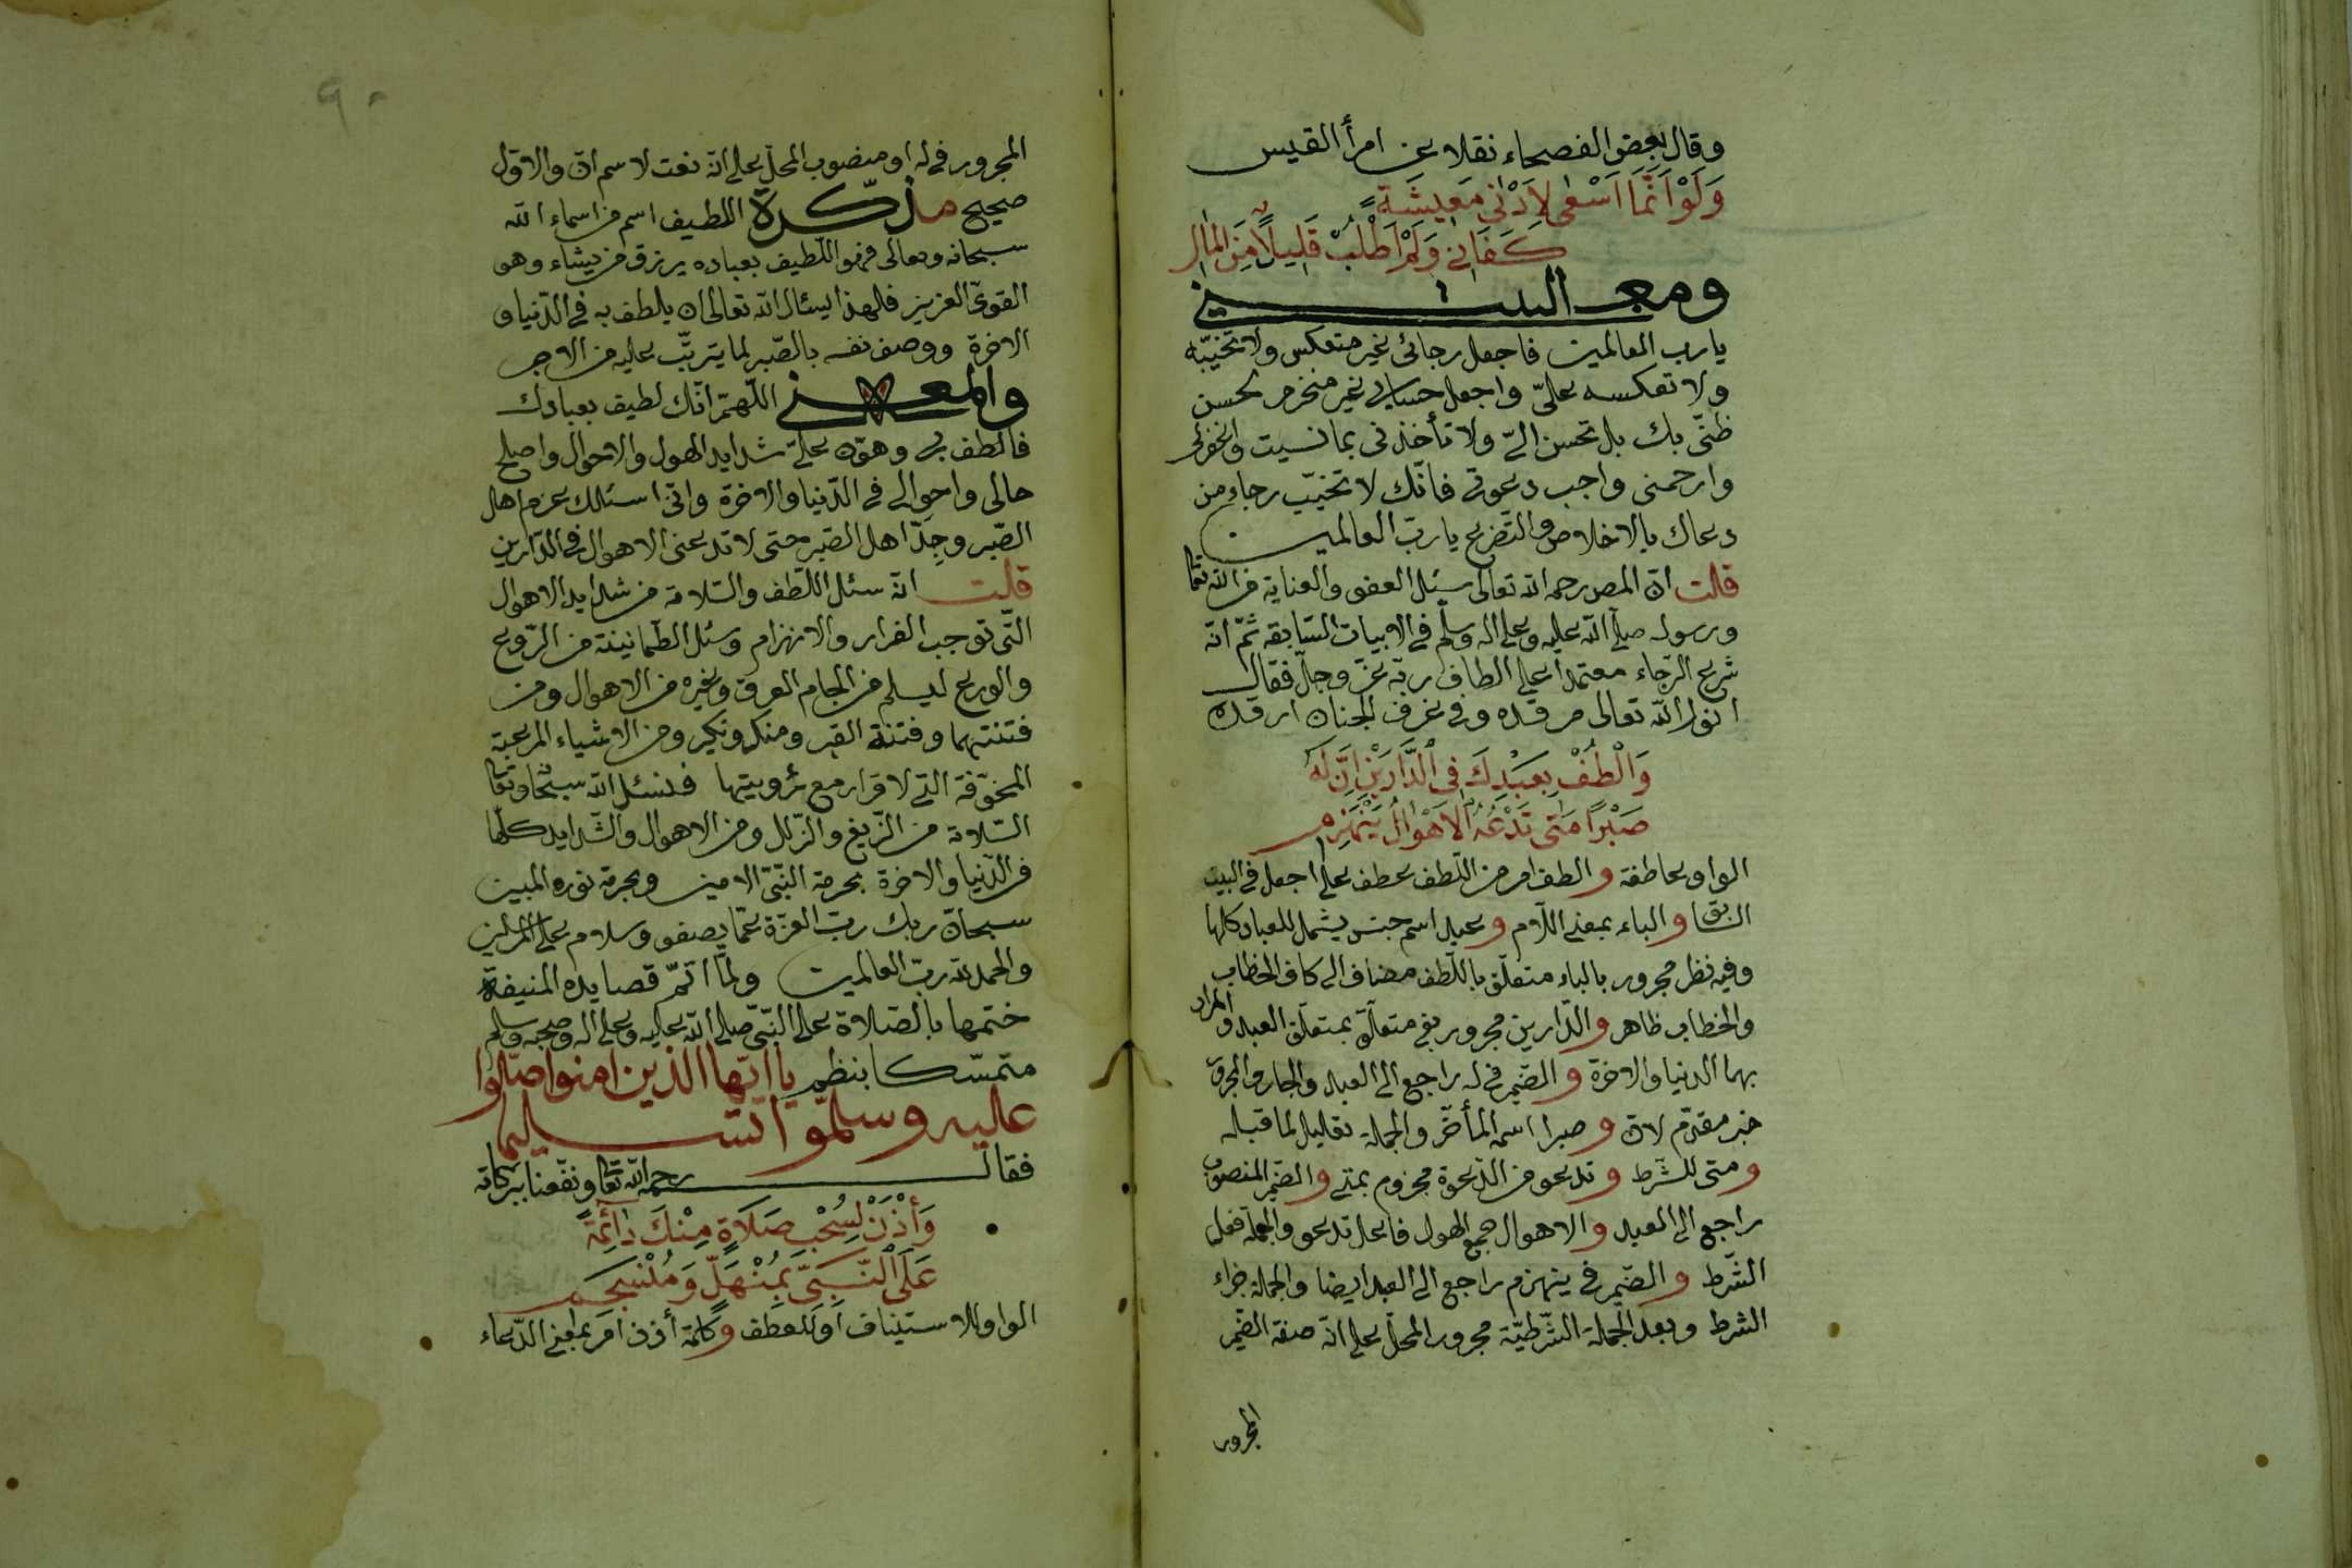 وقال بعض الفصحاء نقلا عن امرأ القيس
وَلَوْ اَنَّمَا اَسْعٰى لِاَدْنٰى مَعِيشَةٍ
كَفَانِى وَلَمْ اَطْلُبْ قَلِيلًا مِنَ المَالِ
ومعنى البيت
يارب العالمين فاجعل رجائى غير منعكس ولا تخيّبه
ولا تعكسه علىّ واجعل حسابى غير منخرم لحسن
ظنّى بك بل تحسن الىّ ولا تأخذنى بما نسيت واغفرلى
وارحمنى واجب دعوتى فانّك لا تخيّب رجاء من
دعاك بالاخلاص والتضرع يا ربّ العالمين
قلت انّ المص رحمه الله تعالى سئل العفو والعناية من الله تعا
ورسوله صلى الله عليه وعلى اله وسلم فى الابيات السّابقه ثمّ انّه
شرع الرّجاء معتمدا على الطاف ربّه عزّ وجلّ فقال
نور الله تعالى مرقده وفى غرف الجنان ارقده
وَالْطُفْ بِعَبْدِكَ فِى الدَّارَيْنِ اِنَّ لَهُ
صَبْرًا مَتٰى تَدْعُهُ الاَهْوَالُ يَنْهَزِمِ
الواو عاطفة والطف امر من اللّطف عطف على اجعل فى البيت
السّابق والباء بمعنى اللّام وعبد اسم جنس يشمل للعباد كلها
وفيه نظر مجرور بالباء متعلّق باللّطف مضاف الى كاف الخطاب
والخطاب ظاهر والدّارين مجرور بفى متعلّق بمتعلّق العبد والمراد
بهما الدنيا والاخرة والضّمير فى له راجع الى العبد والجار والمجرور
خبر مقدّم لانّ وصبرا اسمه المأخّر والجملة تعليل لما قبله
ومتى للشّرط وتدعو من الدّعوة مجزوم بمتى والضّمير المنصوب
راجع الى العبد والاهوال جمع الهول فاعل تدعو والجملة فعل
الشّرط والضّمير فى ينهزم راجع الى العبد ايضا والجملة جزاء
الشرط وبعد الجملة الشّرطيّة مجرور المحلّ على انّه صفة الضّمير
المجرور
٩٠
المجرور فى له او منصوب المحلّ على انّه نعت لاسم انّ والاوّل
صحيح مذكرة اللطيف اسم من اسماء الله
سبحانه وتعالى فهو اللّطيف بعباده يرزق من يشاء وهو
القوىّ العزيز فلهذا يسئل الله تعالى ان يلطف به فى الدّنيا و
الاخرة ووصف نفسه بالصّبر لما يترتّب عليه من الاجر
والمعنى اللّهمّ انّك لطيف بعبادك
فالطف بى وهوّن علىّ شدايد الهول والاحوال واصلح
حالى واحوالى فى الدّنيا والاخرة وانّى اسئلك عزم اهل
الصّبر وجِدّ اهل الصّبر حتى لا تدعنى الاهوال فى الدّارين
قلت انّه سئل اللّطف والسّلامة من شدايد الاهوال
الّتى توجب الفرار والانهزام وسئل الطّمانينة من الرّوع
والورع ليسلم من الجام العرق وغيره من الاهوال ومن
فتنتهما وفتنة القبر ومنكر ونكير ومن الاشياء المرعبة
المخوّفة الّتى لا قرار مع رؤيتها فنسئل الله سبحا وتعا
السّلامة من الزّيغ والزّلل ومن الاهوال والشّدايد كلّها
فى الدّنيا والاخرة بحرمة النّبىّ الامين وبحرمة نوره المبين
سبحان ربك ربّ العزّة عمّا يصفون وسلام على المرسلين
والحمد لله ربّ العالمين ولمّا اتمّ قصايده المنيفة
ختمها بالصّلاة على النّبىّ صلى الله عليه وعلى اله وصحبه وسلم
متمسّكا بنظم يا ايّها الذين امنوا صلّوا
عليه وسلّموا تسليما
فقال رحمه الله تعا ونفعنا ببركاته
وَأْذَنْ لِسُحْبِ صَلَاةٍ مِنْكَ دَائِمَةً
عَلَى النَّبِىِّ بِمُنْهَلٍّ وَمُنْسَجِمِ
الواو للاستيناف او للعطف وكلمة أذن امر بمعنى الدّعاء